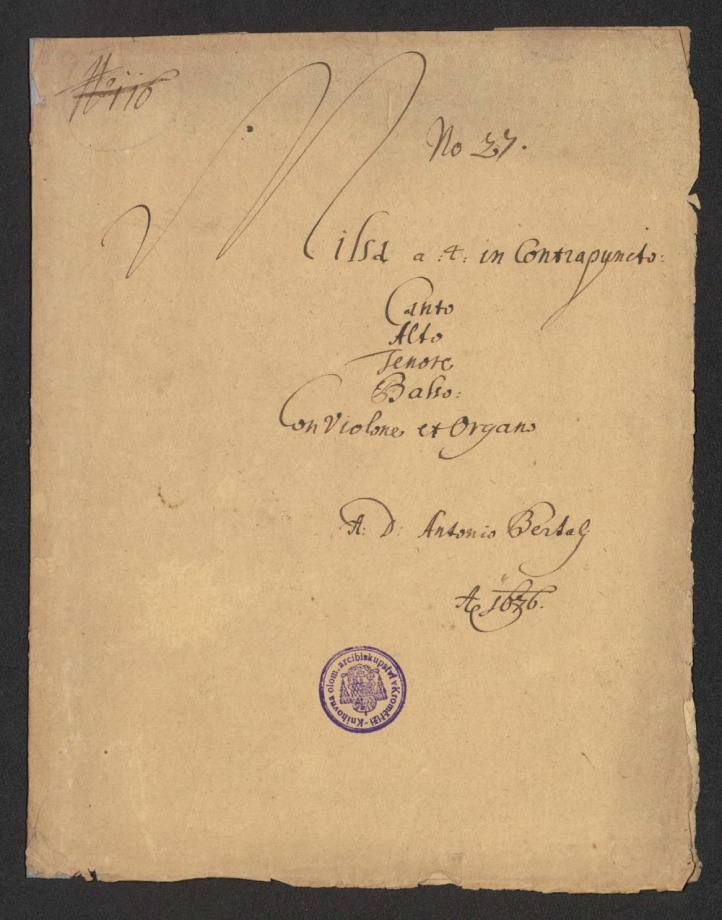 No 116
No 27.
Missa a :4: in Contrapuncto:
Canto
Alto
Tenore
Basso:
Con Violone et Organo
A: D: Antonio Bertali
Aº 1676.
Knihovna olom. arcibiskupství v Kroměříži -